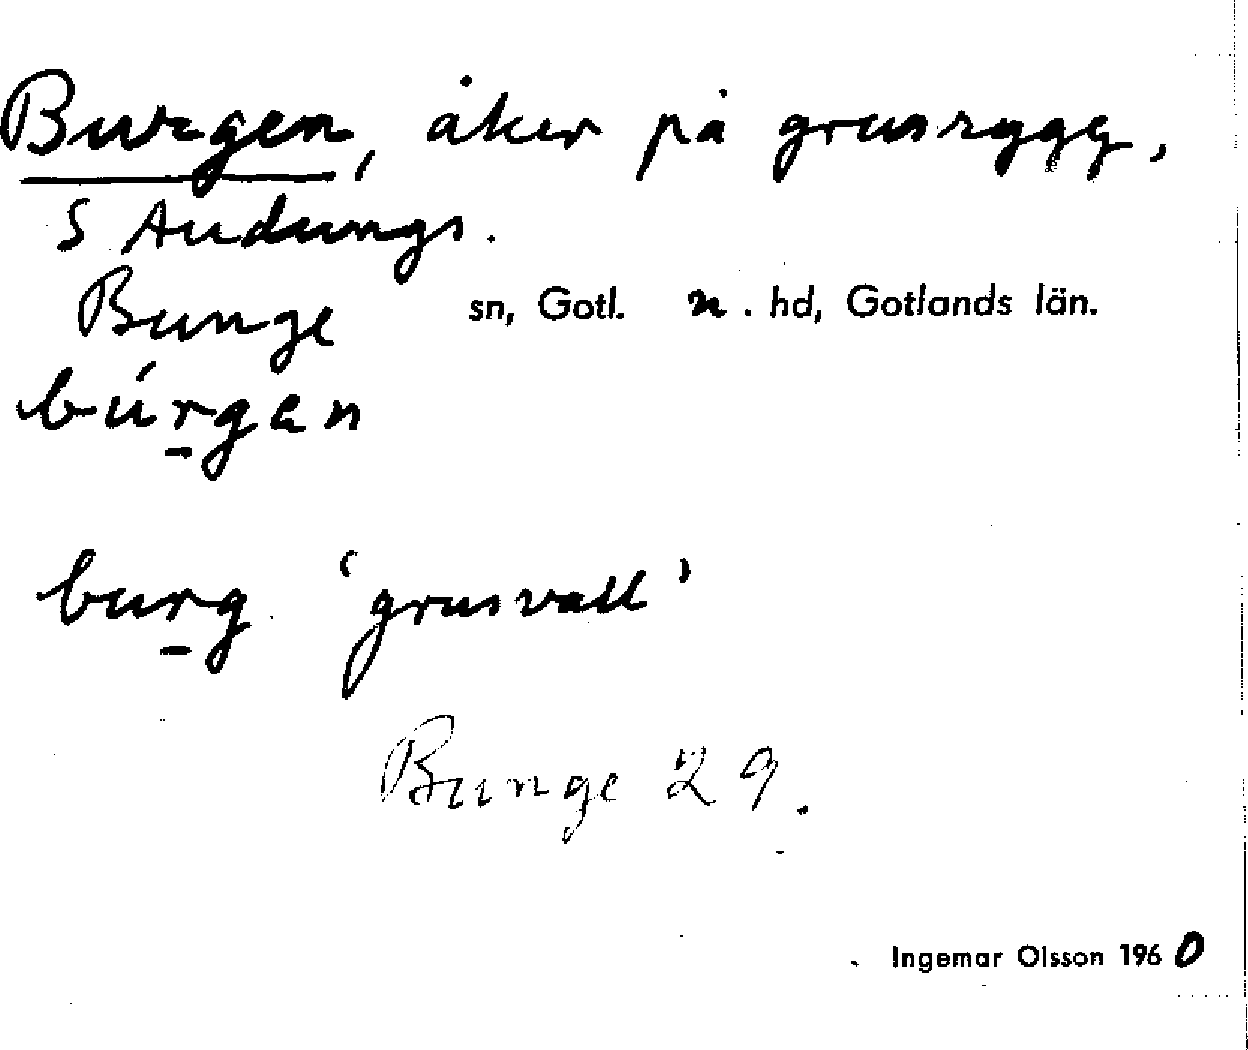 Burgen, åker på grusrygg,
S Audungs.
Bunge sn, Gotl. n. hd, Gotlands län.
búr̠gan
bur̠g 'grusvall'
Bunge 29.
Ingemar Olsson 1960